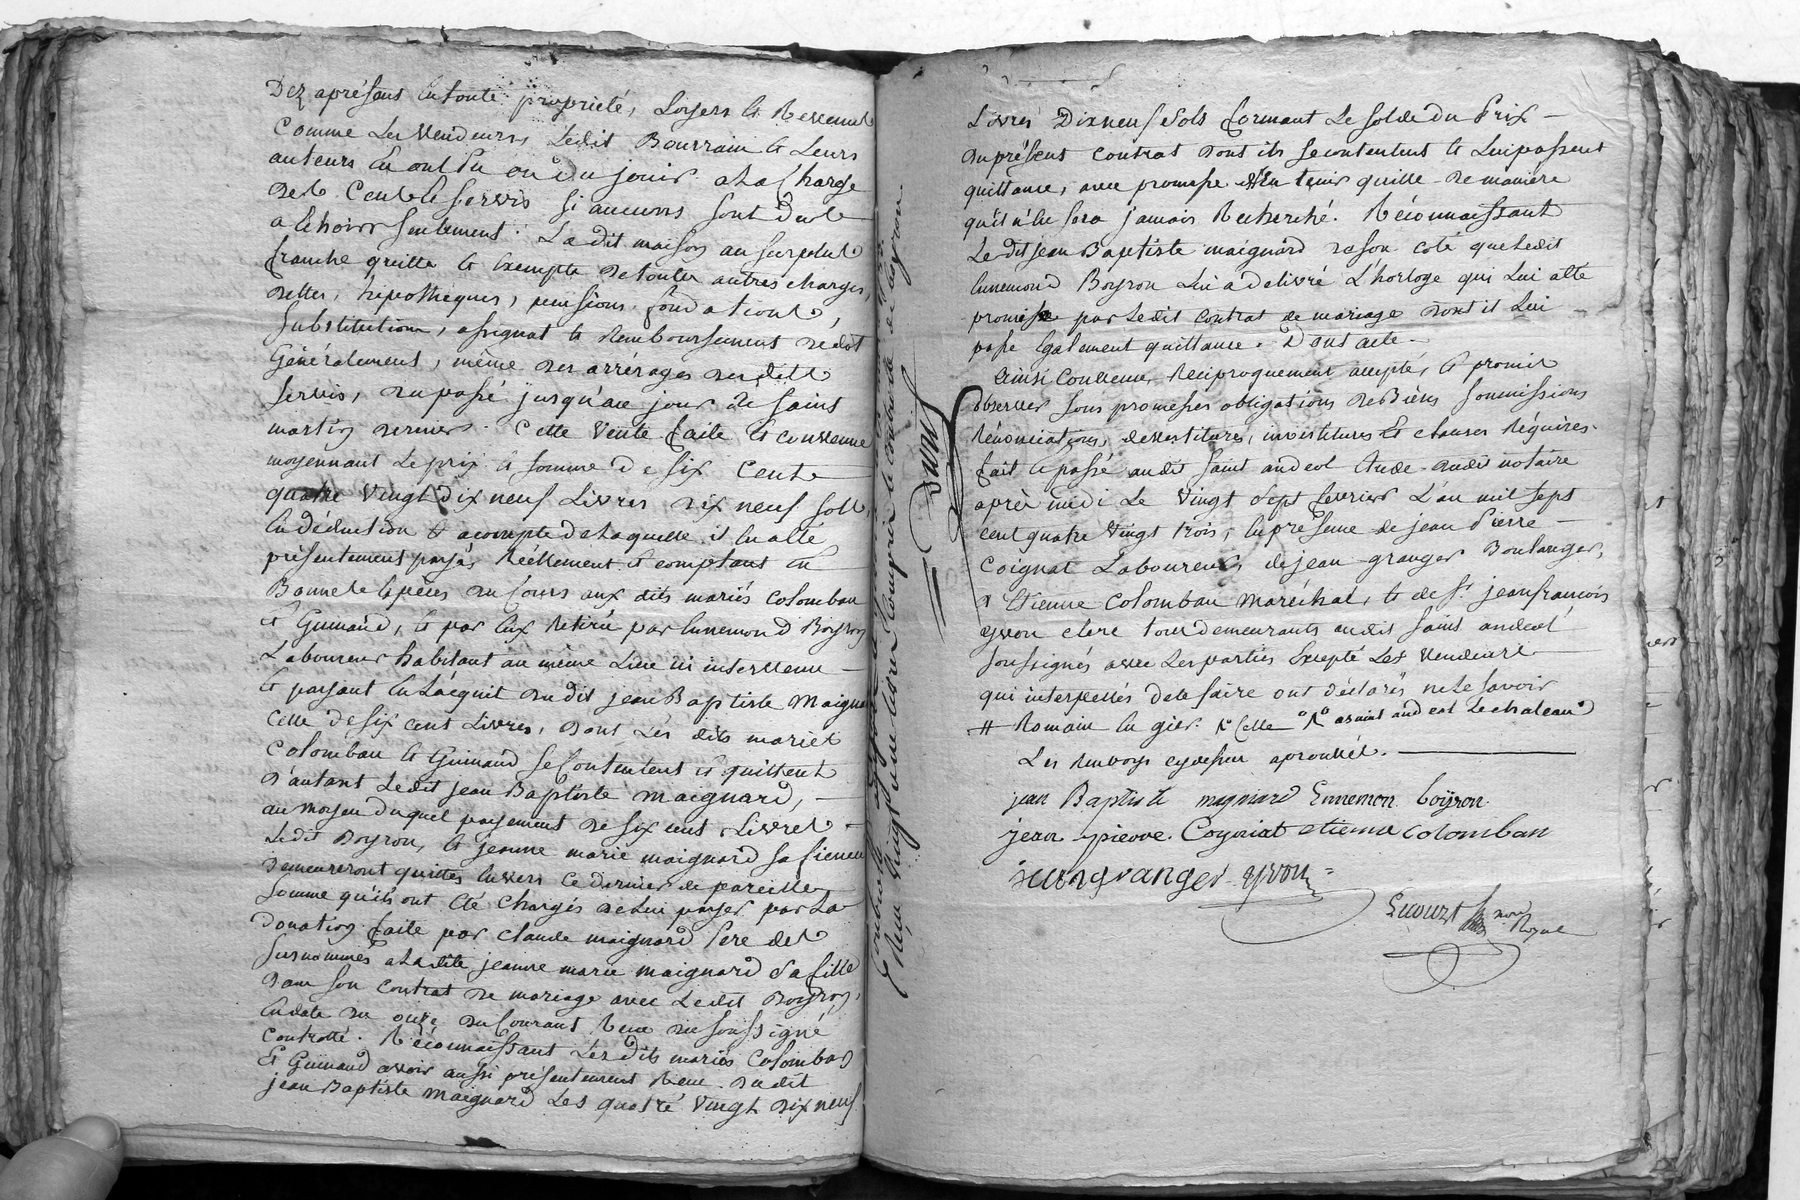 Dez aprésent en toute proprieté, Loyers et Revenus
Comme Les vendeurs, Ledit Bourrain et Leurs
auteurs en ont Pu ou du jouir a La Charge
des Cens et servis si aucuns sont Dus
a Echoirs seulement. La dit maison au surplus
franche quitte et Exempte de toutes autres charges,
dettes, hipotheques, pensions, fondations,
substitution, assignat et Remboursement de dot
Généralement, même des arrérages desdits
servis, du passé jusqu'au jour de saint
martin dernier. Cette vente faite et convenue
moyennant Le prix et somme de six Cents
quatre vingt Dix neuf Livres dix neuf sols,
En Déduction et acompte de Laquelle il en a été
présentement payés Réellement et comptant En
Bonnes Espèces du Cours aux dits mariés Colomban
et Guinand, et par Eux Retiré par Ennemond Boyron
Laboureur habitant au même Lieu ici intervenu
et payant En L'acquit dudit jean Baptiste Maignard
Celle de six cent Livres, dont Les dits mariés
Colomban et Guinand se Contentent et quittent
D'autant Ledit jean Baptiste Maignard,
au moyen duquel payement de six cents Livres
Ledit Boyron, et jeanne marie maignard sa fiancée
Demeureront quittes Envers Ce Dernier de pareille
Somme qu'ils ont été Chargés de Lui payer par La
Donation faite par Claude maignard Pere des
surnommés a Ladite jeanne marie maignard sa fille
dans son contrat de mariage avec Ledit Boyron,
En date du onze du Courant Reçu du soussigné
Controllé. Réconnaissant Lesdits mariés Colomban
Et Guinand avoir aussi présentement Reçu dudit
jean Baptiste Maignard Les quatre vingt dix neuf
Reçu vingt une Livres Compris
Livres Dixneuf sols formant Le solde du Prix
du présent contrat dont ils se contentent et Lui passent
quittance, avec promesse d'En tenir quitte de manière
qu'il n'en sera jamais Recherché. Réconnaissant
Le dit jean Baptiste maignard de son coté que Ledit
Ennemond Boyron Lui a delivré L'horloge qui Lui a été
promise par Ledit Contrat de mariage dont il Lui
passe Egalement quittance. Dont acte.
Ainsi Convenu, Réciproquement accepté, et promis
observer sous promesses obligations de Biens soumissions
Rénonciations, devestitures, investitures Et clauses Réquises.
fait et passé audit saint andeol Etude dudit notaire
après midi Le vingt sept fevrier L'an mil sept
cent quatre vingt trois, En présence de jean Pierre
Coignat Laboureur, de jean granger Boulanger,
d'Etienne Colomban Maréchal, et de Sr. jean françois
yvon clerc tous demeurants audit saint andeol
soussignés avec Les parties Excepté Les vendeurs
qui interpellés de le faire ont déclarés ne Le savoir
# Romain En gier. R° Celle ° R° a saint andeol Le chateau °
Les Renvoys cydessus aprouvés.
jean Baptiste magnard Ennemon boÿron
jean pierre. Coyniat etienne colomban
jean granger yvon
not. Royal